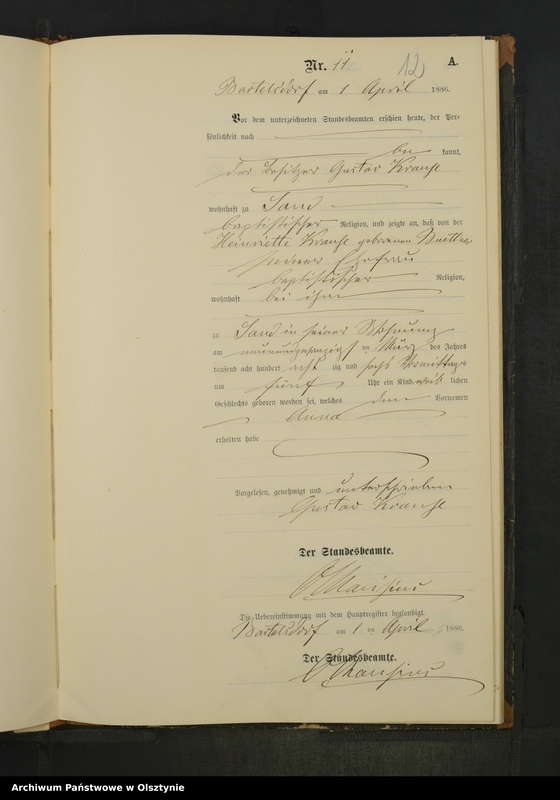 Nr. 11 12 A.
Bartelsdorf am 1 April 1886.
Vor dem unterzeichneten Standesbeamten erschien heute, der Per-
sönlichkeit nach
be kannt,
der Besitzer Gustav Krause
wohnhaft zu Sand
baptistischer Religion, und zeigte an, daß von der
Henriette Krause geborenen
seiner Ehefrau
baptistischer Religion,
wohnhaft bei ihm
zu Sand in seiner Wohnung
am neunundzwanzigsten März des Jahres
tausend acht hundert acht zig und sechs Vormittags
um fünf Uhr ein Kind weib lichen
Geschlechts geboren worden sei, welches den Vornamen
Anna
erhalten habe
Vorgelesen, genehmigt und unterschrieben
Gustav Krause
Der Standesbeamte.
Die Uebereinstimmung mit dem Hauptregister beglaubigt.
Bartelsdorf am 1 ten April 1886.
Der Standesbeamte.
Archiwum Państwowe w Olsztynie